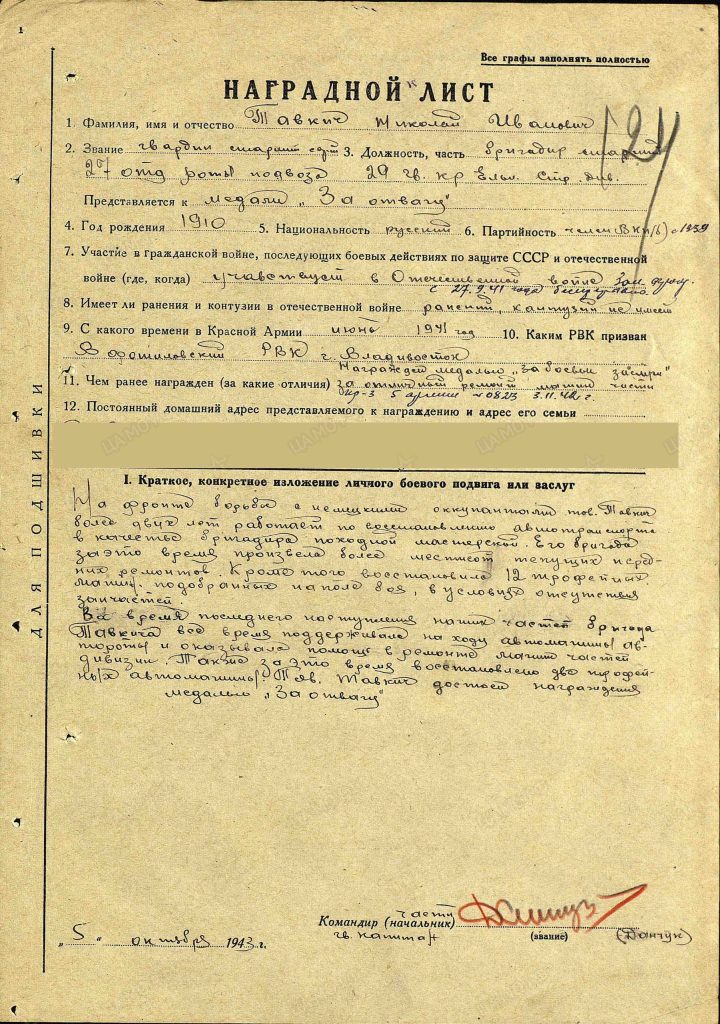 1
Все графы заполнять полностью
НАГРАДНОЙ ЛИСТ
1. Фамилия, имя и отчество Тавкич Николай Иванович
2. Звание гвардии старшт сержт 3. Должность, часть бригадир
27 отд роты подвоза 29 гв. кр Ельн. Стр. див.
Представляется к медали „За отвагу"
4. Год рождения 1910 5. Национальность русский 6. Партийность член ВКП/б/ с 1939
7. Участие в гражданской войне, последующих боевых действиях по защите СССР и отечественной
войне (где, когда) участвует в Отечественной войне Зап. фрон.
с 27.9.41 года
8. Имеет ли ранения и контузии в отечественной войне ранений, контузий не имеет
9. С какого времени в Красной Армии июнь 1941 год 10. Каким РВК призван
Ворошиловский РВК г. Владивосток
Награжден медалью „За боевые заслуги"
11. Чем ранее награжден (за какие отличия) за отличный ремонт машин части
пр-з 5 армии №0823 3.11.42 г.
12. Постоянный домашний адрес представляемого к награждению и адрес его семьи
I. Краткое, конкретное изложение личного боевого подвига или заслуг
На фронте борьбы с немецкими оккупантами тов. Тавкич
более двух лет работает по восстановлению автотранспорта
в качестве бригадира походной мастерской. Его бригада
за это время произвела более шестисот текущих и сред-
них ремонтов. Кроме того восстановила 12 трофейных
машин, подобранных на поле боя, в условиях отсутствия
запчастей.
За время последнего наступления наших частей бригада
Тавкича все время поддерживала на ходу автомашины ав-
тороты и оказывала помощь в ремонте машин частей
дивизии. Также за это время восстановлено две трофей-
ных автомашины. Тов. Тавкич достоен награждения
медалью „За отвагу"
ДЛЯ ПОДШИВКИ
части
Командир (начальник)
гв. капитан (звание) (Данчук)
„5" октября 1943 г.